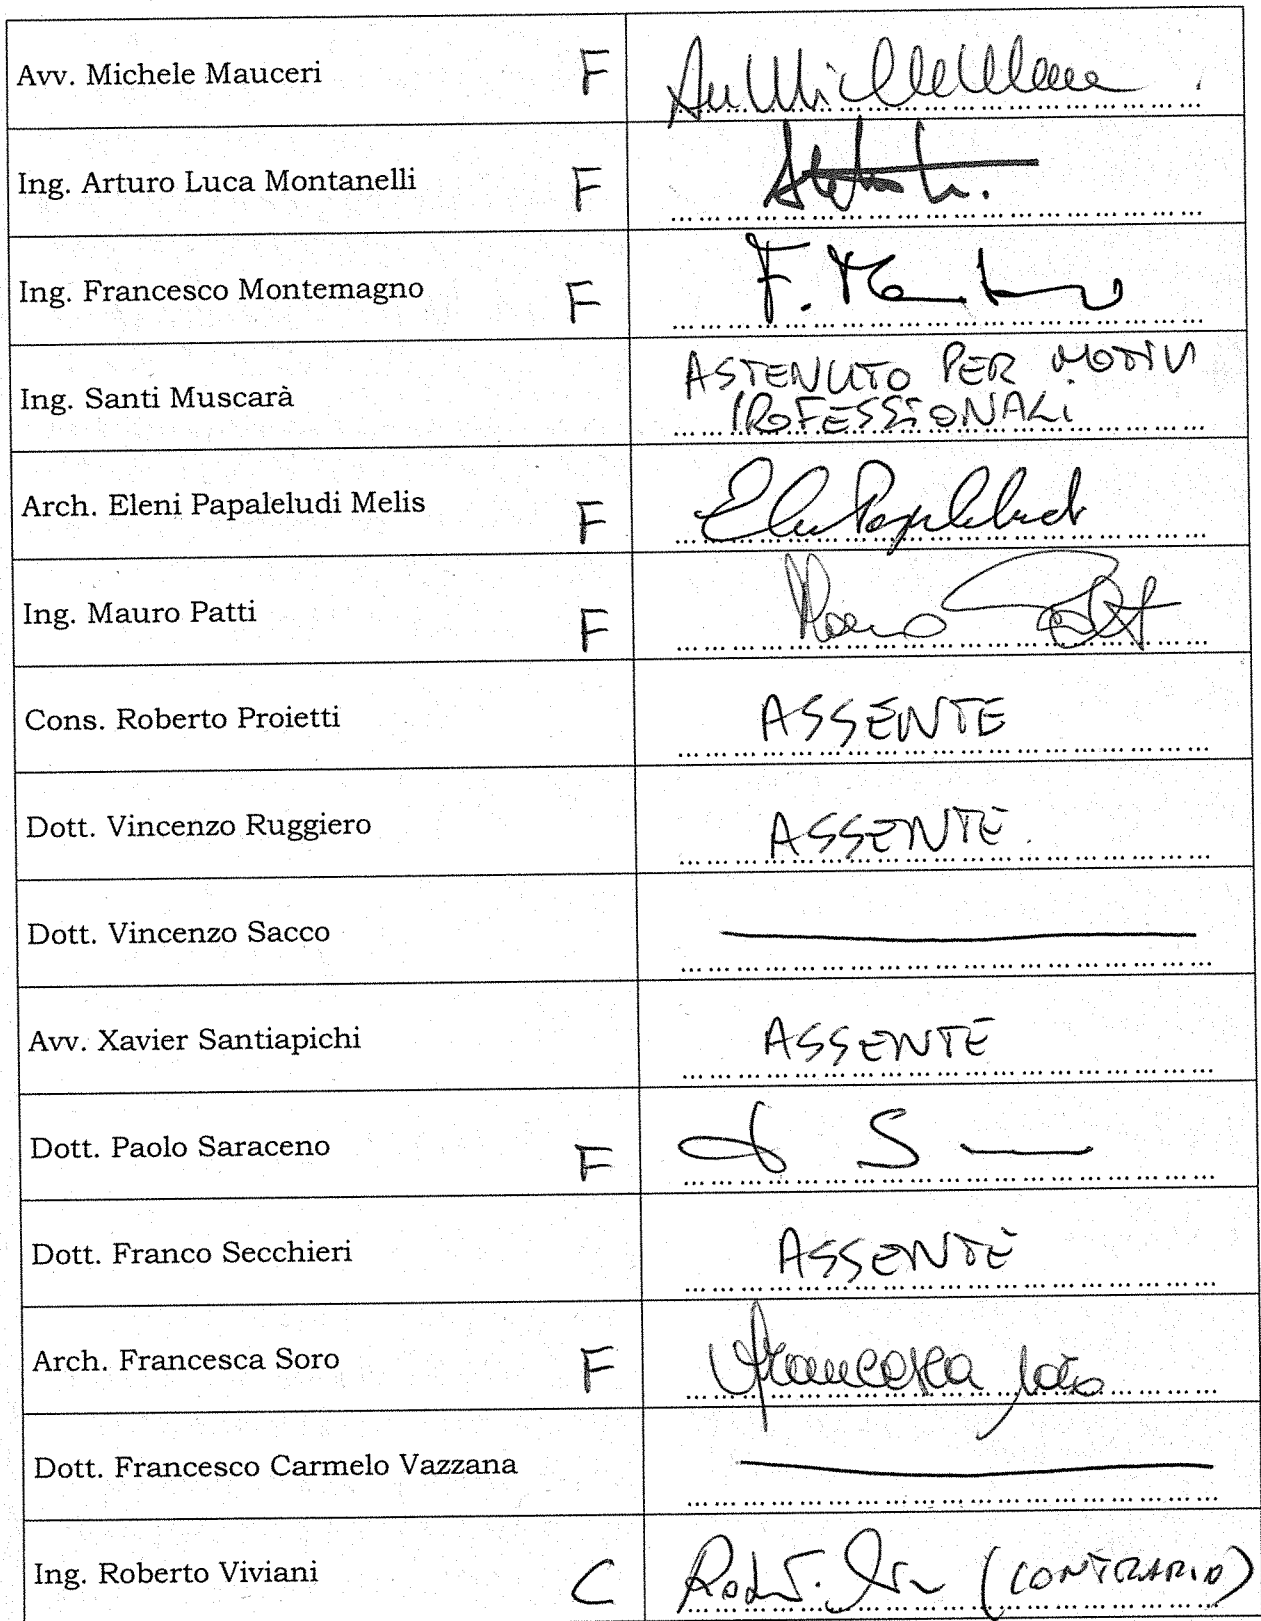 Avv. Michele Mauceri F
Ing. Arturo Luca Montanelli F
Ing. Francesco Montemagno F
F.
Ing. Santi Muscarà
ASTENUTO PER MOTIVI
PROFESSIONALI
Arch. Eleni Papaleludi Melis F
Ing. Mauro Patti F
Cons. Roberto Proietti ASSENTE
Dott. Vincenzo Ruggiero ASSENTE
Dott. Vincenzo Sacco
Avv. Xavier Santiapichi ASSENTE
Dott. Paolo Saraceno F S
Dott. Franco Secchieri ASSENTE
Arch. Francesca Soro F Francesca Soro
Dott. Francesco Carmelo Vazzana
Ing. Roberto Viviani C (CONTRARIO)